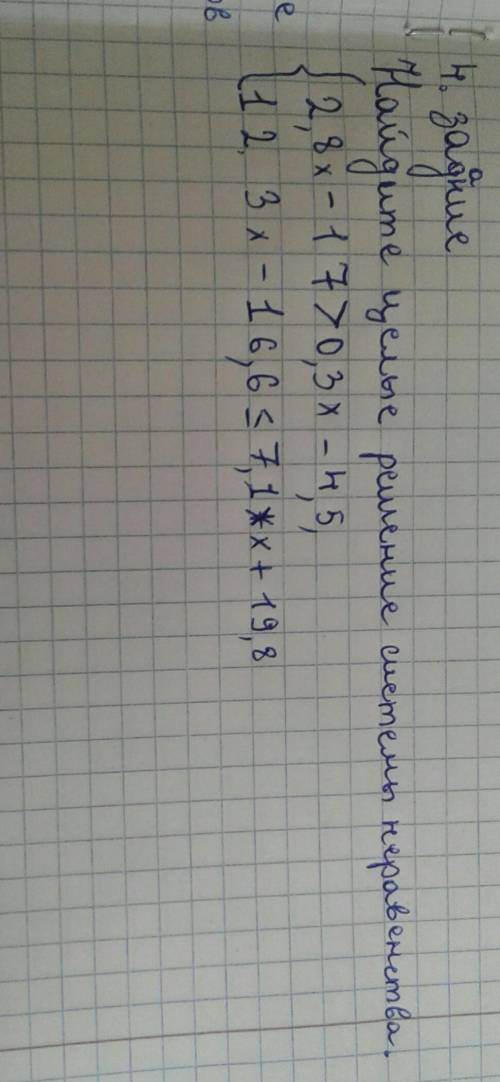 4. задание
Найдите целые решение системы неравенства.
{ 2,8х - 17 > 0,3х - 4,5,
{ 12,3х - 16,6 ≤ 7,1*х + 19,8
е
ов